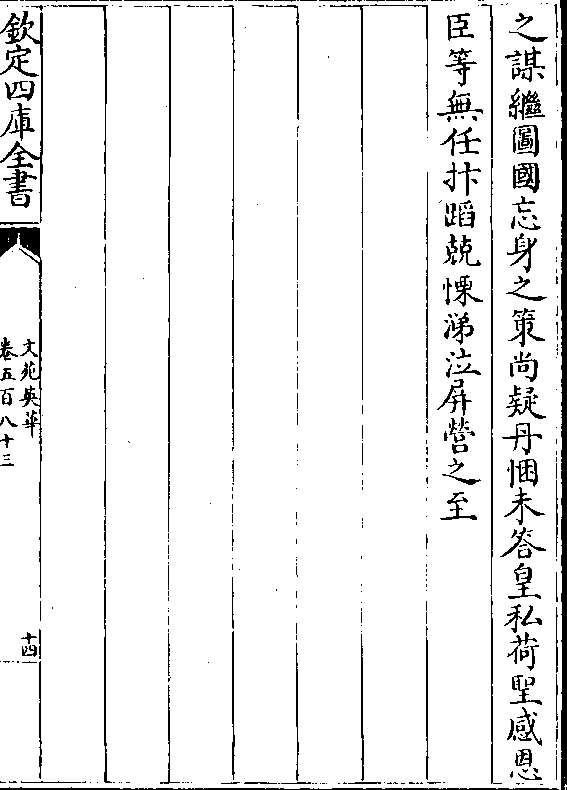 之謀繼圖國忘身之策尚疑丹悃未答皇私荷聖感恩
臣等無任抃蹈兢慄涕泣屏營之至
欽定四庫全書
文苑英華
卷五百八十三
十四